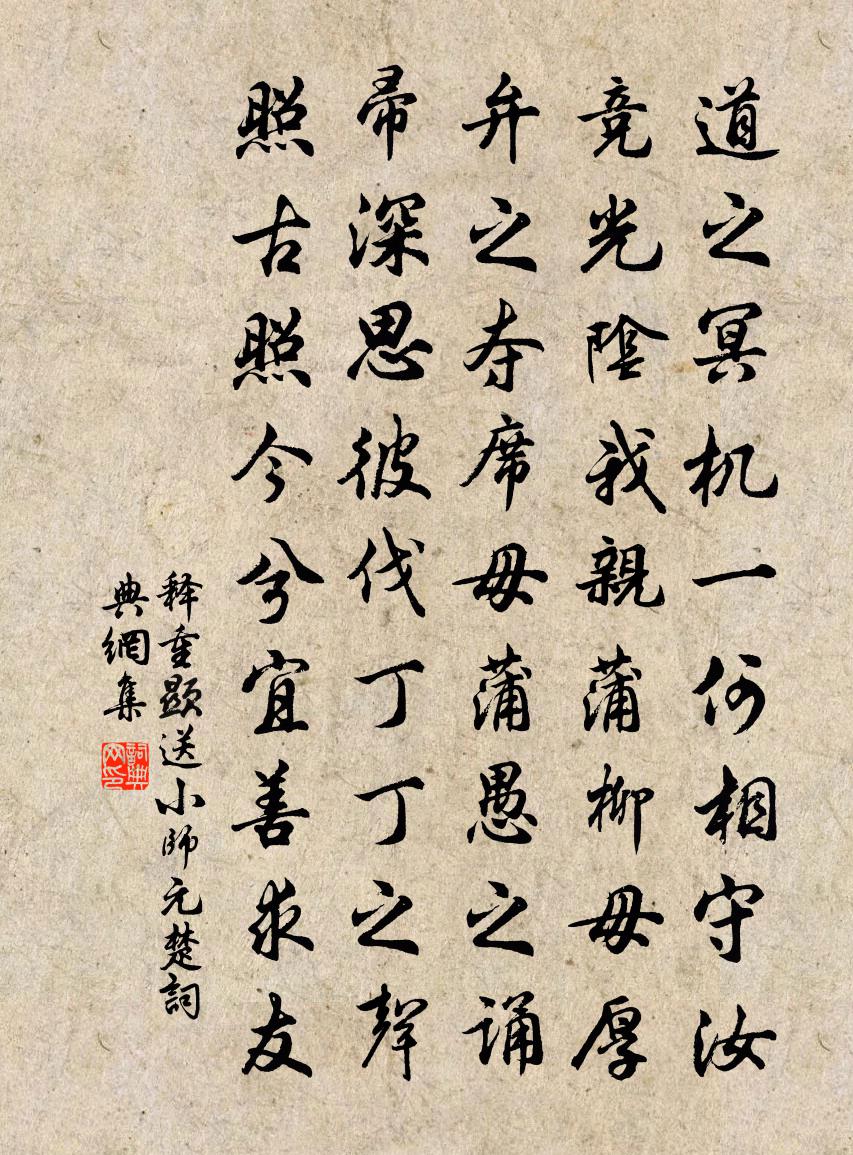 道之冥机一何相守汝
竞光陰我親蒲柳毋厚
弁之夺席毋蒲愚之诵
帚深思彼伐丁丁之聲
照古照今兮宜善求友
释重顯送小師元楚詞
典網集
詞典
网印